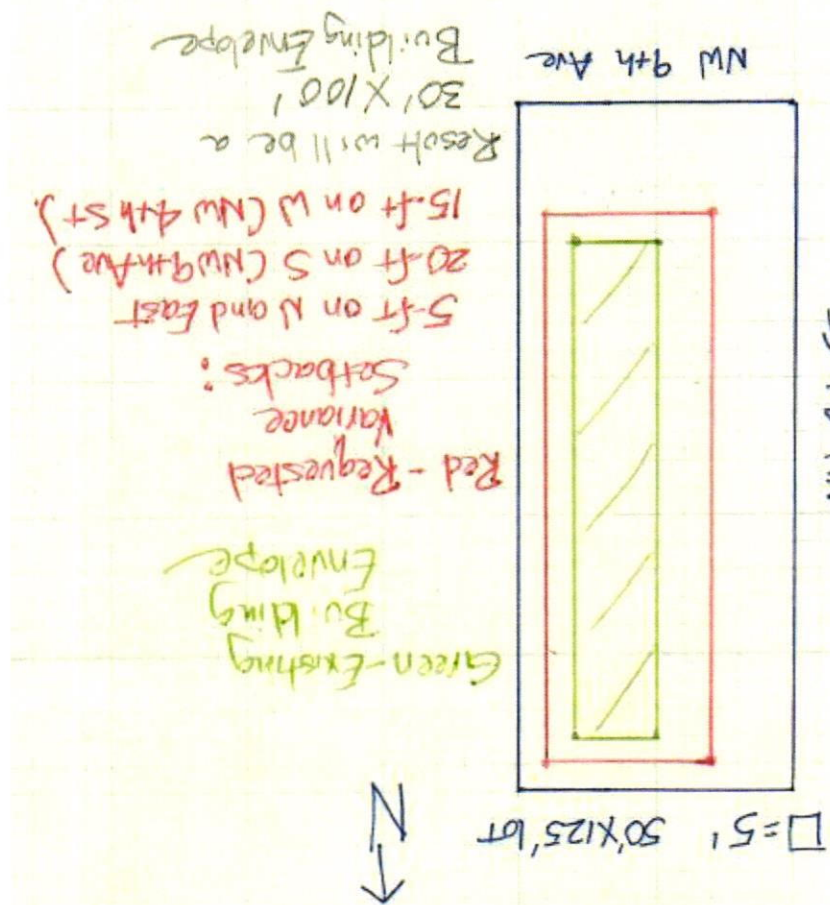 □=5' 50'X125' LOT
N
Green-Existing
Building
Envelope
Red - Requested
Variance
Setbacks:
5-ft on N and East
20-ft on S (NW 9th Ave)
15-ft on W (NW 4th St).
Result will be a
30' X 100'
Building Envelope
NW 9th Ave